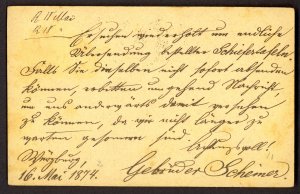 Ersuchen wiederholt um endliche
Übersendung bestellter Schiefertafeln.
Falls Sie dieselben nicht sofort absenden
können, erbitten umgehend Nachricht,
um uns anderwärts damit versehen
zu können, da wir nicht länger zu
warten gesonnen sind.
Achtungsvoll!
Würzburg,
16. Mai 1874. Gebrüder Scheiner.